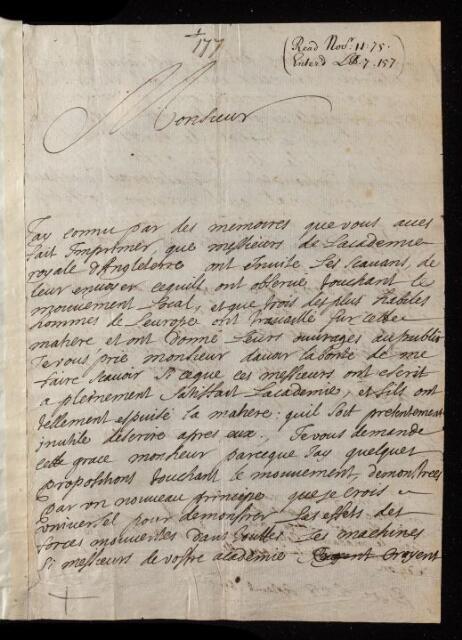 177
(Read Novr. 11. 75.
Enterd LB. 7. 157)
Monsieur
Jay connu par des memoires que vous aues
fait Imprimer que messieurs de Lacademie
royale d'Angleterre ont Inuite Les scauans de
leur enuoyer cequils ont obserue touchant le
mouuement Local, et que trois des plus habiles
hommes de Leurope ont trauaillé sur cette
matiere et ont donné Leurs ouurages au public
Je vous prie monsieur dauoir la bonté de me
faire scauoir si ceque ces messieurs ont escrit
a pleinement satisfait Lacademie, et sils ont
tellement espuisé la matiere: quil soit presentement
inutile descrire apres eux., Je vous demande
cette grace monsieur parceque Jay quelques
propositions touchant le mouuement, demonstrees
par vn nouueau principe que je crois
vniuersel pour demonstrer Les effets des
forces mouuentes dans touttes Les machines
si messieurs de vostre academie croyent